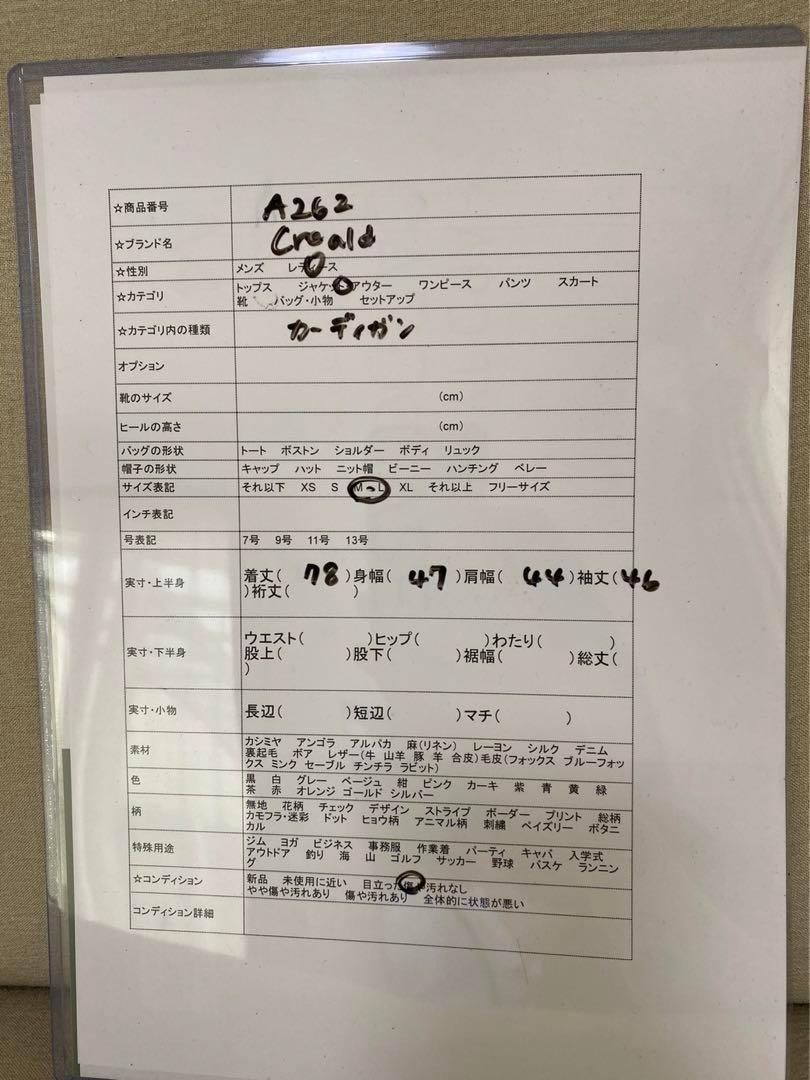 ☆商品番号 A262
☆ブランド名 Creald
☆性別 メンズ レディース
☆カテゴリ トップス ジャケット アウター ワンピース パンツ スカート
靴 バッグ・小物 セットアップ
☆カテゴリ内の種類 カーディガン
オプション
靴のサイズ (cm)
ヒールの高さ (cm)
バッグの形状 トート ボストン ショルダー ボディ リュック
帽子の形状 キャップ ハット ニット帽 ビーニー ハンチング ベレー
サイズ表記 それ以下 XS S M L XL それ以上 フリーサイズ
インチ表記
号表記 7号 9号 11号 13号
実寸・上半身 着丈( 78 )身幅( 47 )肩幅( 44 )袖丈( 46
)裄丈( )
実寸・下半身 ウエスト( )ヒップ( )わたり( )
股上( )股下( )裾幅( )総丈(
)
実寸・小物 長辺( )短辺( )マチ( )
素材 カシミヤ アンゴラ アルパカ 麻(リネン) レーヨン シルク デニム
裏起毛 ボア レザー(牛 山羊 豚 羊 合皮)毛皮(フォックス ブルーフォッ
クス ミンク セーブル チンチラ ラビット)
色 黒 白 グレー ベージュ 紺 ピンク カーキ 紫 青 黄 緑
茶 赤 オレンジ ゴールド シルバー
柄 無地 花柄 チェック デザイン ストライプ ボーダー プリント 総柄
カモフラ・迷彩 ドット ヒョウ柄 アニマル柄 刺繍 ペイズリー ボタニ
カル
特殊用途 ジム ヨガ ビジネス 事務服 作業着 パーティ キャバ 入学式
アウトドア 釣り 海 山 ゴルフ サッカー 野球 バスケ ランニン
グ
☆コンディション 新品 未使用に近い 目立った傷や汚れなし
やや傷や汚れあり 傷や汚れあり 全体的に状態が悪い
コンディション詳細